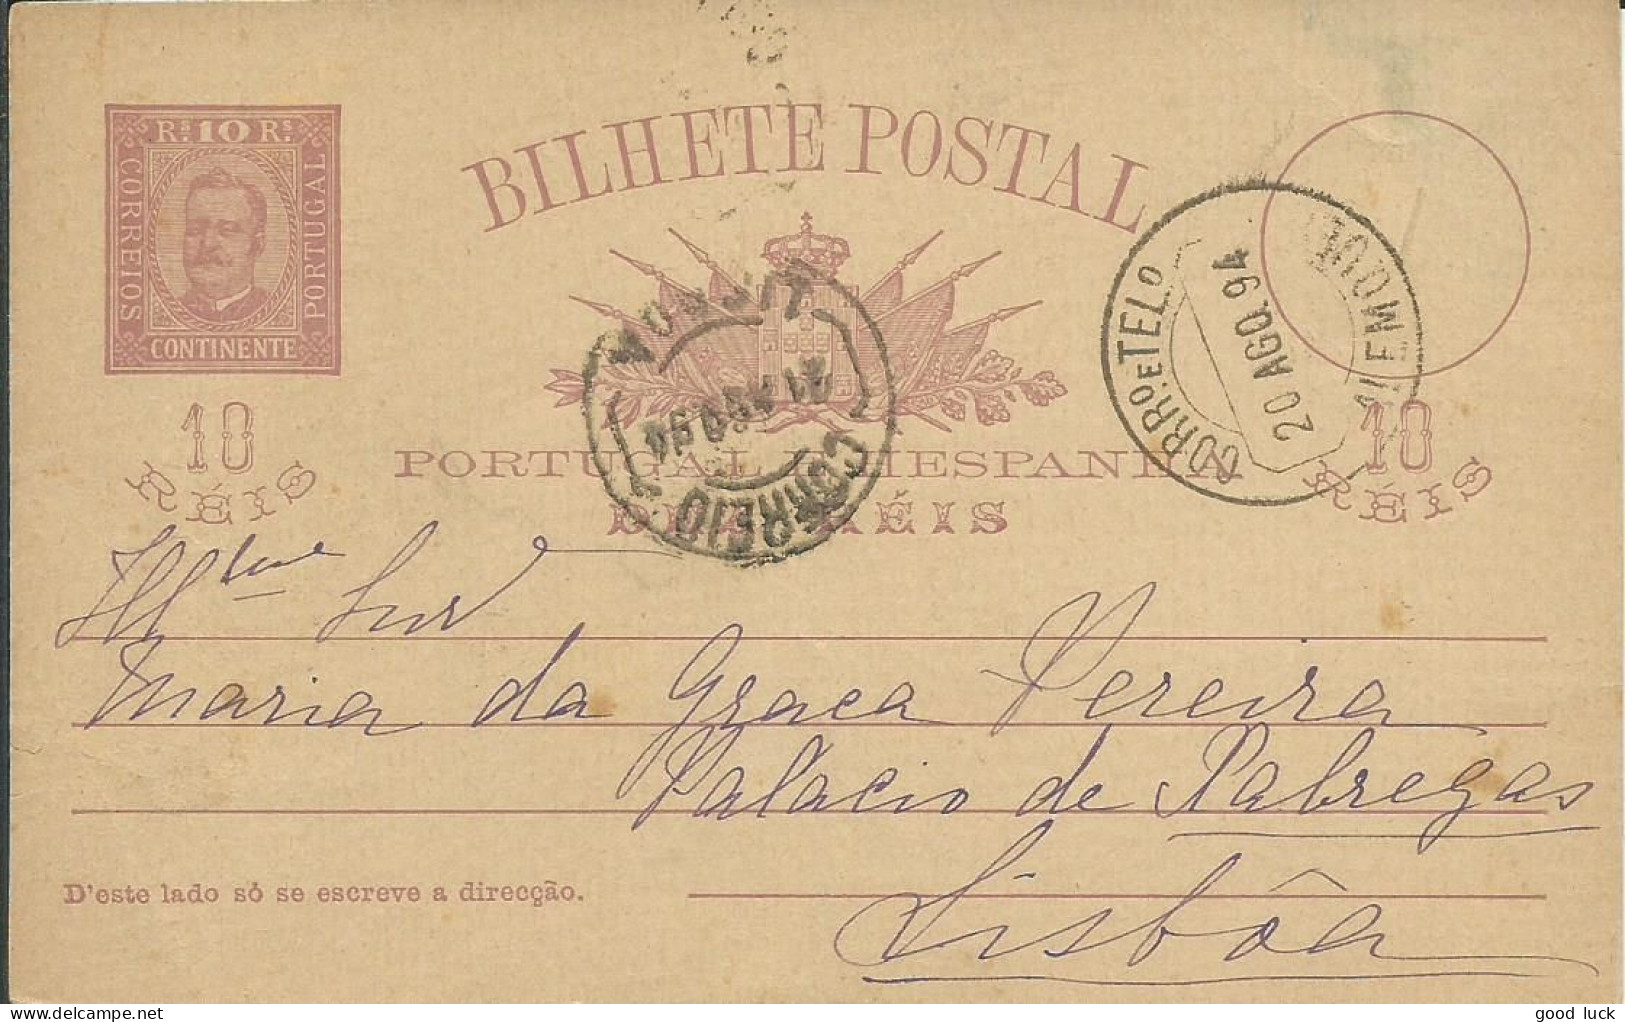 Rs. 10 Rs.
CORREIOS
PORTUGAL
CONTINENTE
BILHETE POSTAL
10
RÉIS
PORTUGAL E HESPANHA
DEZ RÉIS
10
RÉIS
LISBOA
21 AGO 94
CORREIO
CORRO. E TELO
20 AGO. 94
ALEMQUER
Illma Snr
Maria da Graca Pereira
Palacio de Xabregas
Lisbôa
D'este lado só se escreve a direcção.
good luck
www.delcampe.net